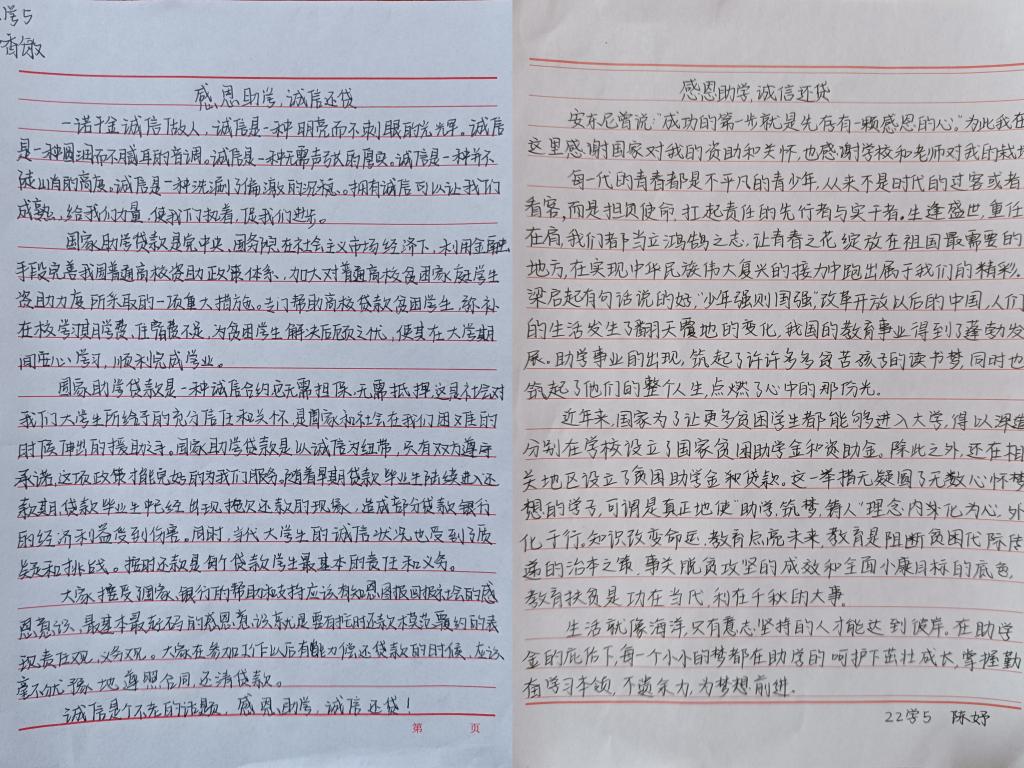 学5
香敏
感恩助学,诚信还贷
一诺千金诚信做人,诚信是一种明亮而不刺眼的光辉。诚信
是一种圆润而不腻耳的音调。诚信是一种无需声张的厚实。诚信是一种并不
陡峭的高度。诚信是一种洗涮了偏激的沉稳。拥有诚信可以让我们
成熟,给我们力量,使我们执着,促我们进步。
国家助学贷款是党中央、国务院在社会主义市场经济下,利用金融
手段完善我国普通高校资助政策体系,加大对普通高校贫困家庭学生
资助力度所采取的一项重大措施。专门帮助高校贷款贫困学生,弥补
在校学习期学费、住宿费不足,为贫困学生解决后顾之忧,使其在大学期
间安心学习,顺利完成学业。
国家助学贷款是一种诚信合约它无需担保,无需抵押这是社会对
我们大学生所给予的充分信任和关怀,是国家和社会在我们困难的
时候伸出的援助之手。国家助学贷款是以诚信为纽带,只有双方遵守
承诺,这项政策才能完好的为我们服务。随着早期贷款毕业生陆续进入还
款期,贷款毕业生中已经出现拖欠还款的现象,造成部分贷款银行
的经济利益受到伤害。同时,当代大学生的诚信状况也受到了质
疑和挑战。按时还款是每个贷款学生最基本的责任和义务。
大家接受了国家、银行的帮助和支持应该有知恩图报回报社会的感
恩意识、最基本最起码的感恩意识就是要有按时还款模范履约的表
现责任观,义务观。大家在参加工作以后有能力偿还贷款的时候,应该
毫不犹豫地遵照合同,还清贷款。
诚信是个不老的话题,感恩助学,诚信还贷!
第 页
感恩助学,诚信还贷
安东尼曾说:“成功的第一步就是先存有一颗感恩的心。”为此我在
这里感谢国家对我的资助和关怀,也感谢学校和老师对我的栽培
每一代的青春都是不平凡的青少年,从来不是时代的过客或者
看客,而是担负使命,扛起责任的先行者与实干者。生逢盛世,重任
在肩,我们都当立鸿鹄之志,让青春之花绽放在祖国最需要的
地方,在实现中华民族伟大复兴的接力中跑出属于我们的精彩。
梁启超有句话说的好,“少年强则国强”改革开放以后的中国,人们
的生活发生了翻天覆地的变化,我国的教育事业得到了蓬勃发
展。助学事业的出现,筑起了许许多多贫苦孩子的读书梦,同时也
筑起了他们的整个人生,点燃了心中的那份光。
近年来,国家为了让更多贫困学生都能够进入大学,得以深造
分别在学校设立了国家贫困助学金和资助金。除此之外,还在相
关地区设立了贫困助学金和贷款。这一举措无疑圆了无数心怀梦
想的学子,可谓是真正地使“助学,筑梦,铸人”理念内华化为心,外
化于行。知识改变命运,教育点亮未来,教育是阻断贫困代际传
递的治本之策,事关脱贫攻坚的成效和全面小康目标的底色,
教育扶贫是功在当代,利在千秋的大事。
生活就像海洋,只有意志坚持的人才能达到彼岸。在助学
金的庇佑下,每一个小小的梦都在助学的呵护下茁壮成长,掌握勤
奋学习本领,不遗余力,为梦想前进.
22学5 陈妤